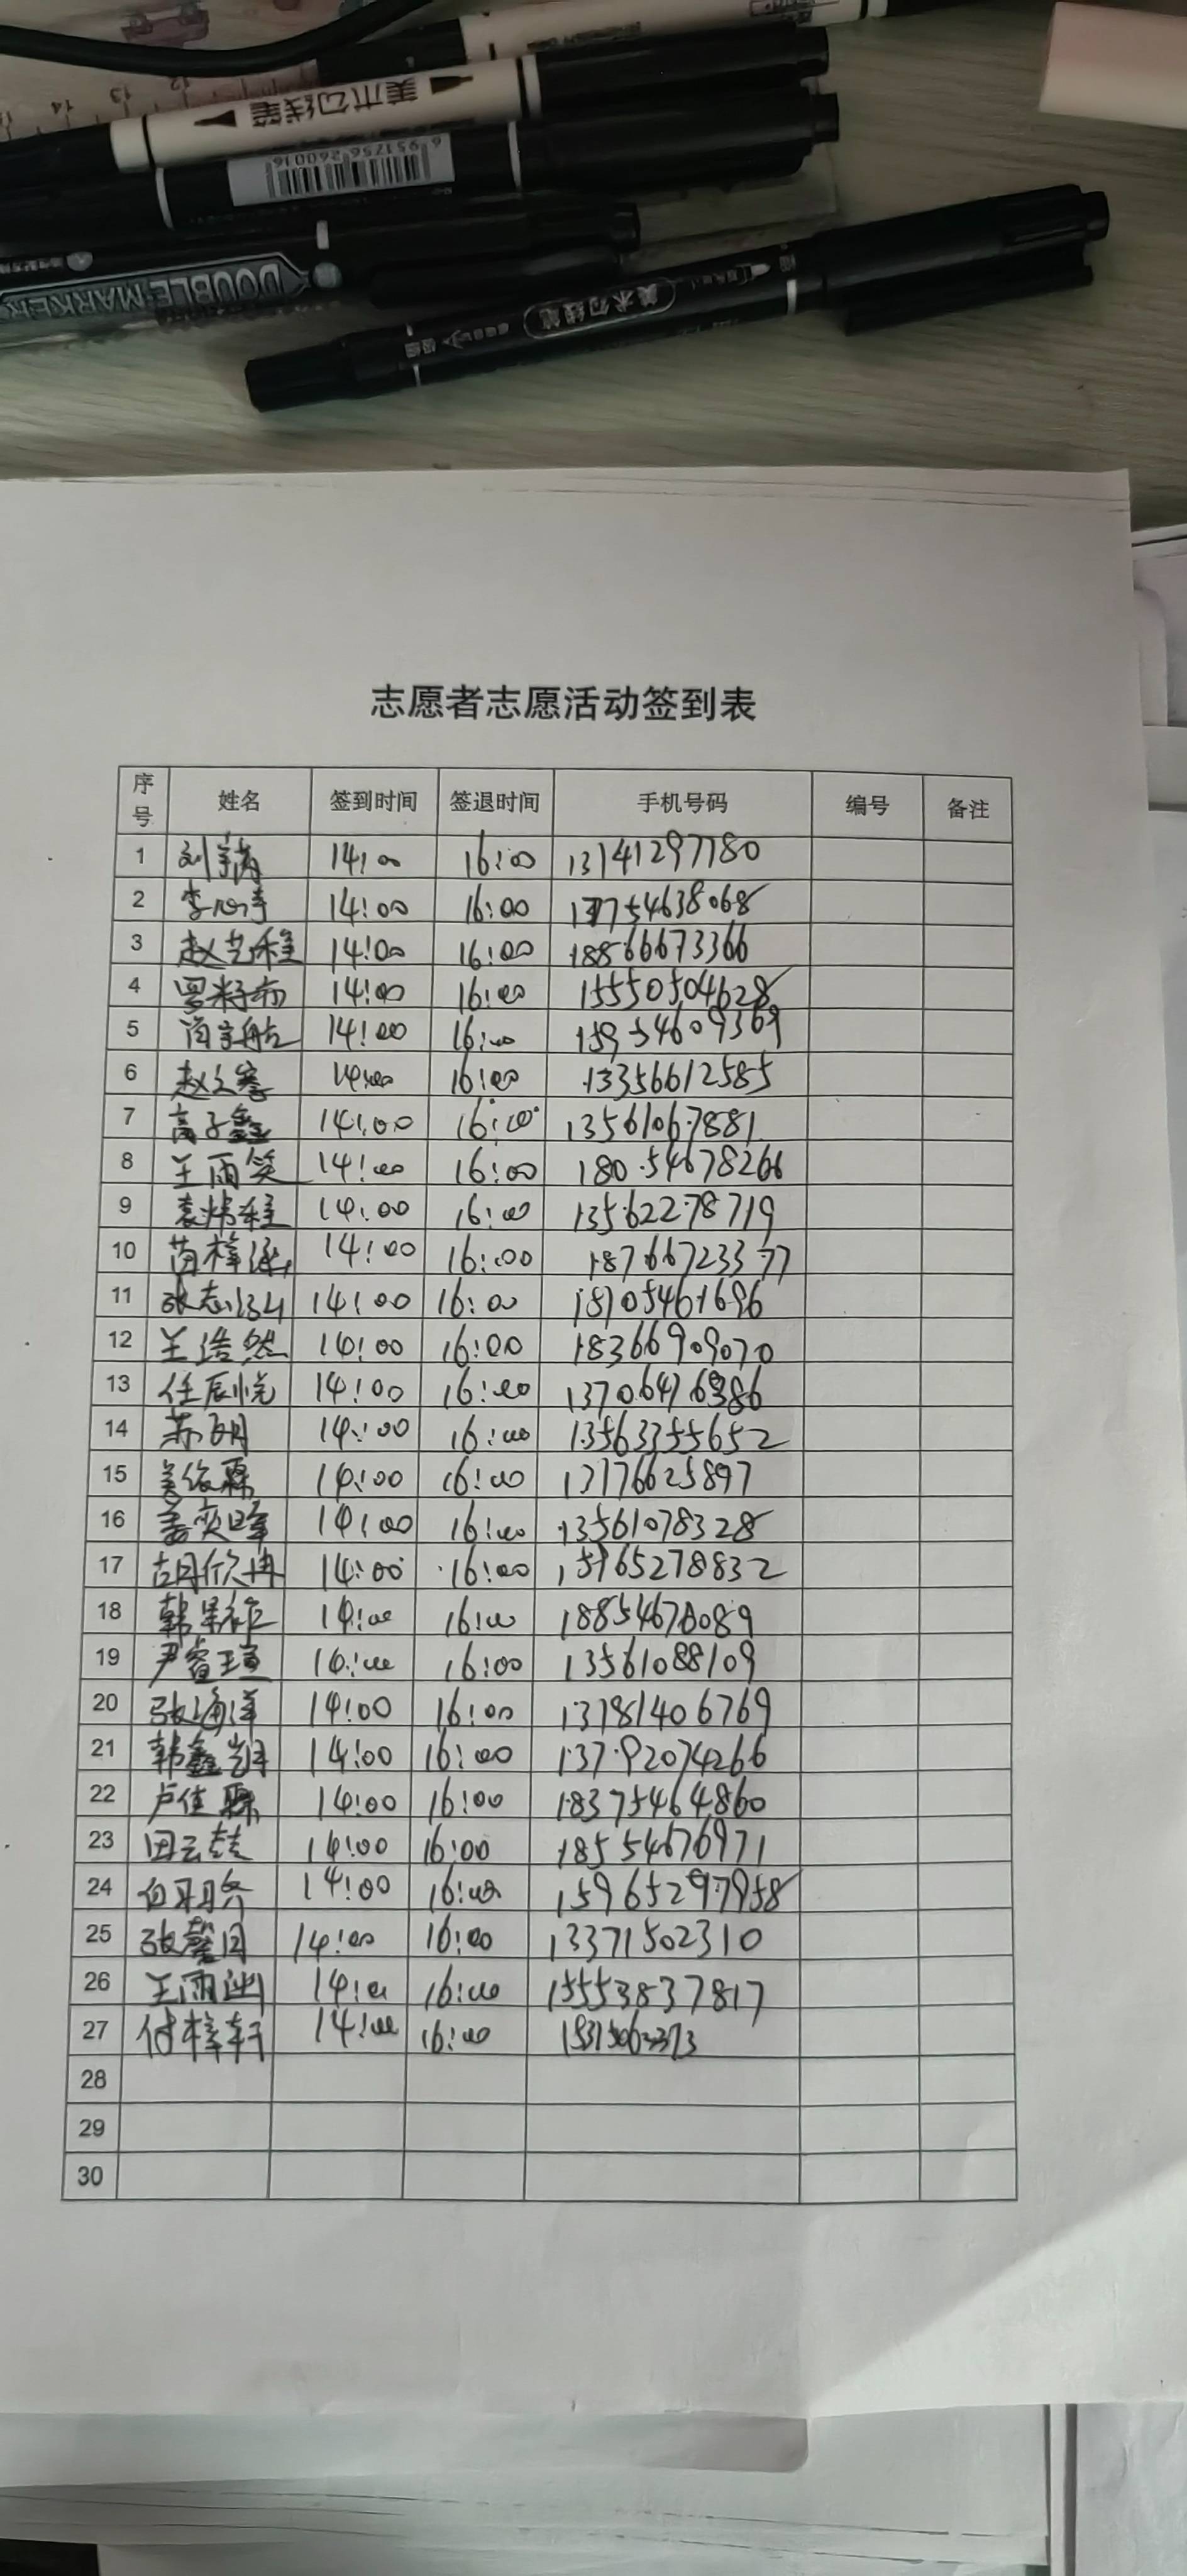 12
13
14
美术勾线笔
6 951256 260016
DOUBLE MARKER
美术勾线笔
志愿者志愿活动签到表
序号 姓名 签到时间 签退时间 手机号码 编号 备注
1 刘 14:00 16:00 13141297780
2 李心 14:00 16:00
3 赵艺程 14:00 16:00 18866673366
4 罗梓 14:00 16:00 15550504628
5 宇航 14:00 16:00 15954609369
6 赵文 14:00 16:00 13356612585
7 高子鑫 14:00 16:00 13561067881
8 王雨笑 14:00 16:00 18054678266
9 袁炜程 14:00 16:00 13562278719
10 梓涵 14:00 16:00 18766723377
11 张志 14:00 16:00
12 王浩然 14:00 16:00 18366909070
13 任辰悦 14:00 16:00
14 苏 14:00 16:00 13563355652
15 姜依霖 14:00 16:00 13176625897
16 姜奕 14:00 16:00 13561078328
17 胡欣冉 14:00 16:00 15965278832
18 韩 14:00 16:00 18854670089
19 尹睿瑄 14:00 16:00 13561088109
20 张海洋 14:00 16:00 13781406769
21 韩鑫 14:00 16:00 13792074266
22 卢佳霖 14:00 16:00 18375464860
23 田云喆 14:00 16:00 18554676971
24 白 14:00 16:00 15965297958
25 张馨月 14:00 16:00 13371502310
26 王雨 14:00 16:00 15553837817
27 付梓轩 14:00 16:00
28
29
30